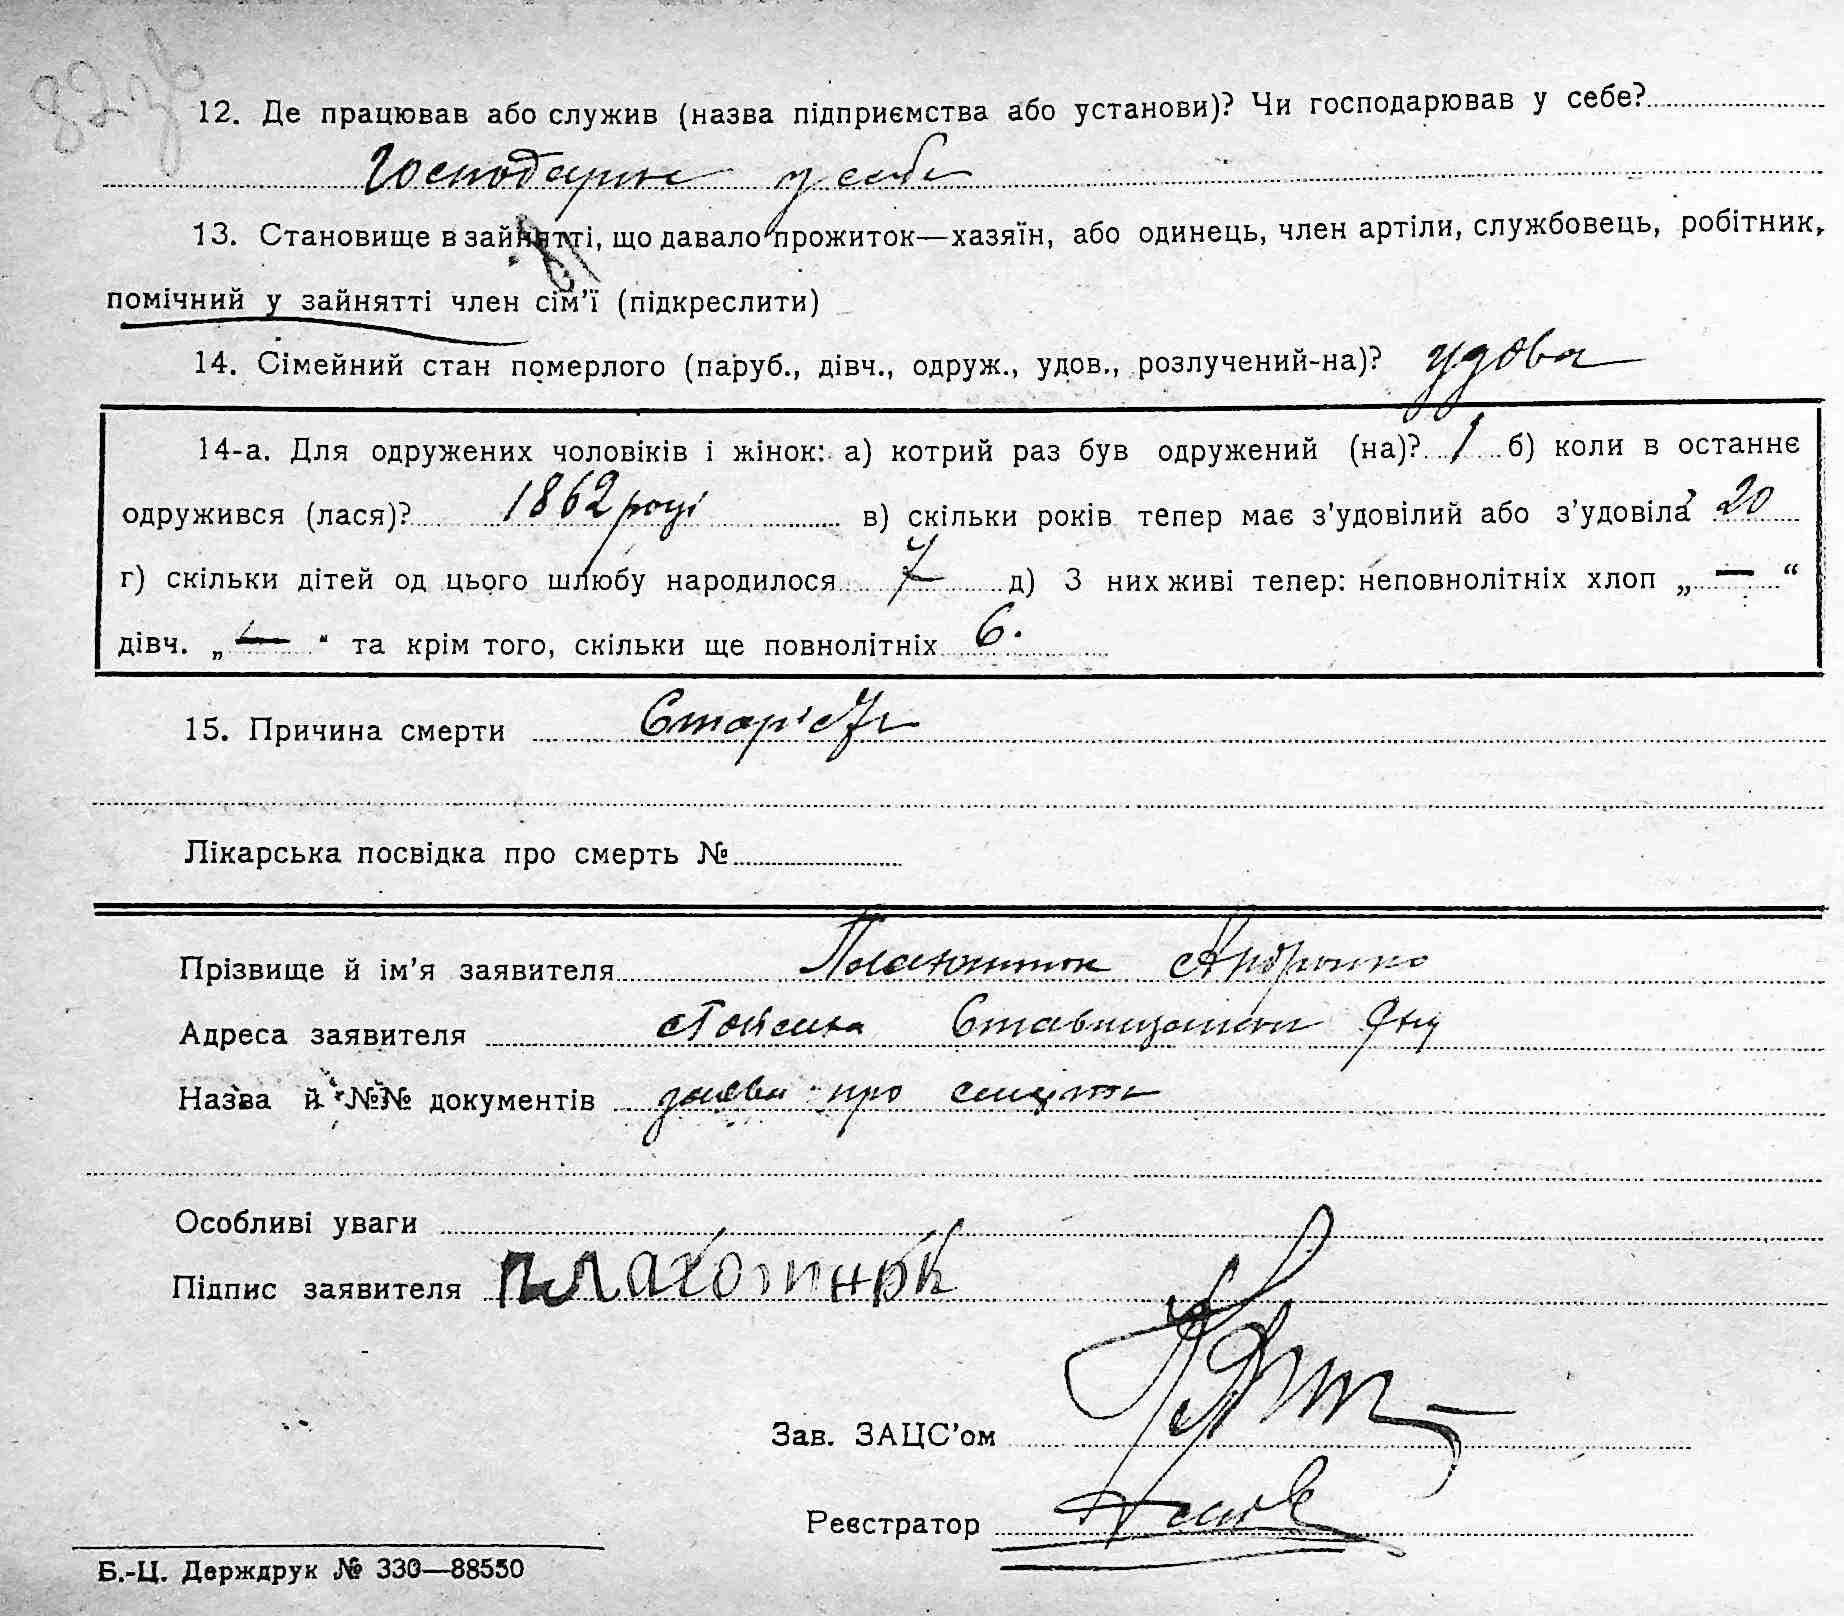 82зв
12. Де працював або служив (назва підприємства або установи)? Чи господарював у себе?
у себе
13. Становище в зайнятті, що давало прожиток—хазяїн, або одинець, член артіли, службовець, робітник,
помічний у зайнятті член сім’ї (підкреслити)
14. Сімейний стан померлого (паруб., дівч., одруж., удов., розлучений-на)? удова
14-а. Для одружених чоловіків і жінок: а) котрий раз був одружений (на)? 1 б) коли в останнє
одружився (лася)? 1862 році в) скільки років тепер має з’удовілий або з’удовіла? 20
г) скільки дітей од цього шлюбу народилося 7 д) З них живі тепер: неповнолітніх хлоп „ — “
дівч. „ — “ та крім того, скільки ще повнолітніх 6.
15. Причина смерти Старість
Лікарська посвідка про смерть №
Прізвище й ім’я заявителя
Адреса заявителя
Назва й №№ документів заява про смерть
Особливі уваги
Підпис заявителя плахотнюк
Зав. ЗАЦС’ом
Реєстратор
Б.-Ц. Держдрук № 330—88550